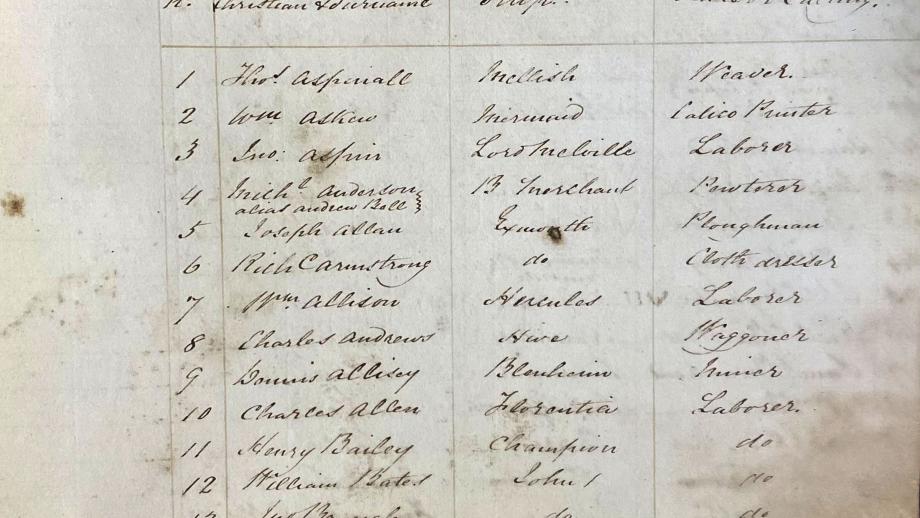 N. Christian & Surname Ship.
1 Thos. Aspinall Mellish Weaver.
2 Wm Askew Mermaid Calico Printer
3 Jno: Aspin Lord Melville Laborer
4 Michl Anderson B Merchant Pewterer
alias Andrew Bell
5 Joseph Allan Exmouth Ploughman
6 Richd Armstrong do Cloth dresser
7 Wm Allison Hercules Laborer
8 Charles Andrews Hive Waggoner
9 Dennis Allisey Blenheim Miner
10 Charles Allen Florentia Laborer.
11 Henry Bailey Champion do
12 William Bates John 1 do
13 Jno do do